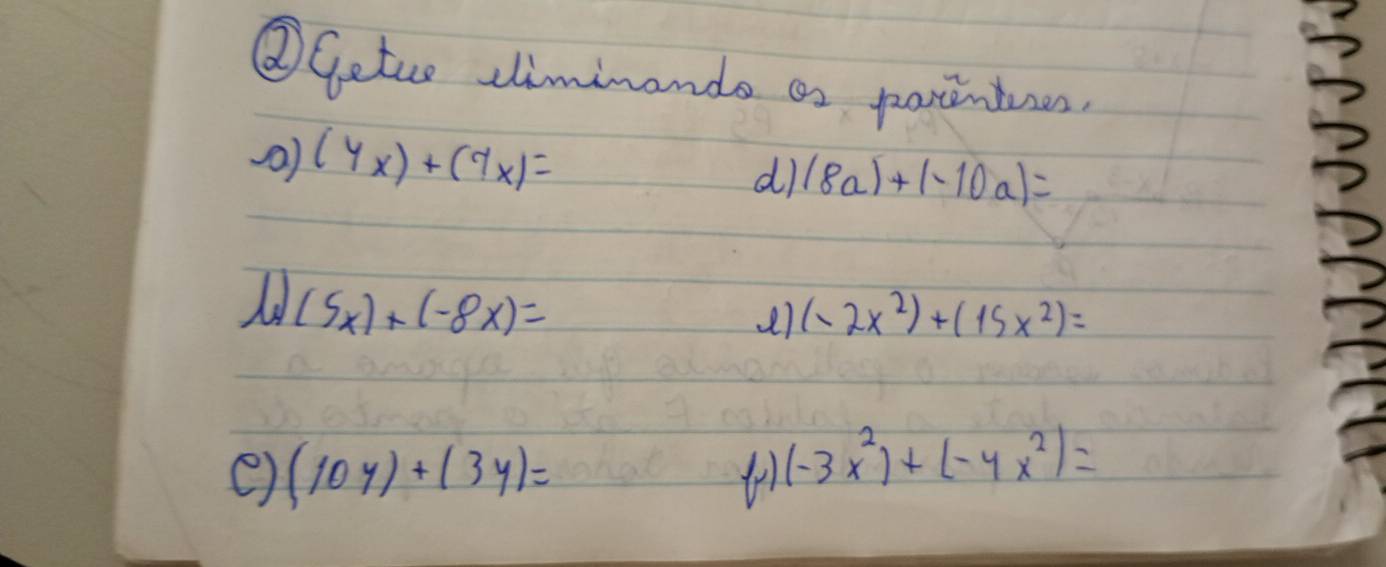 ② Efetue eliminando os parênteses.
a) (4x) + (7x) =
d) (8a) + (-10a) =
b) (5x) + (-8x) =
e) (-2x²) + (15x²) =
c) (10y) + (3y) =
f) (-3x²) + (-4x²) =